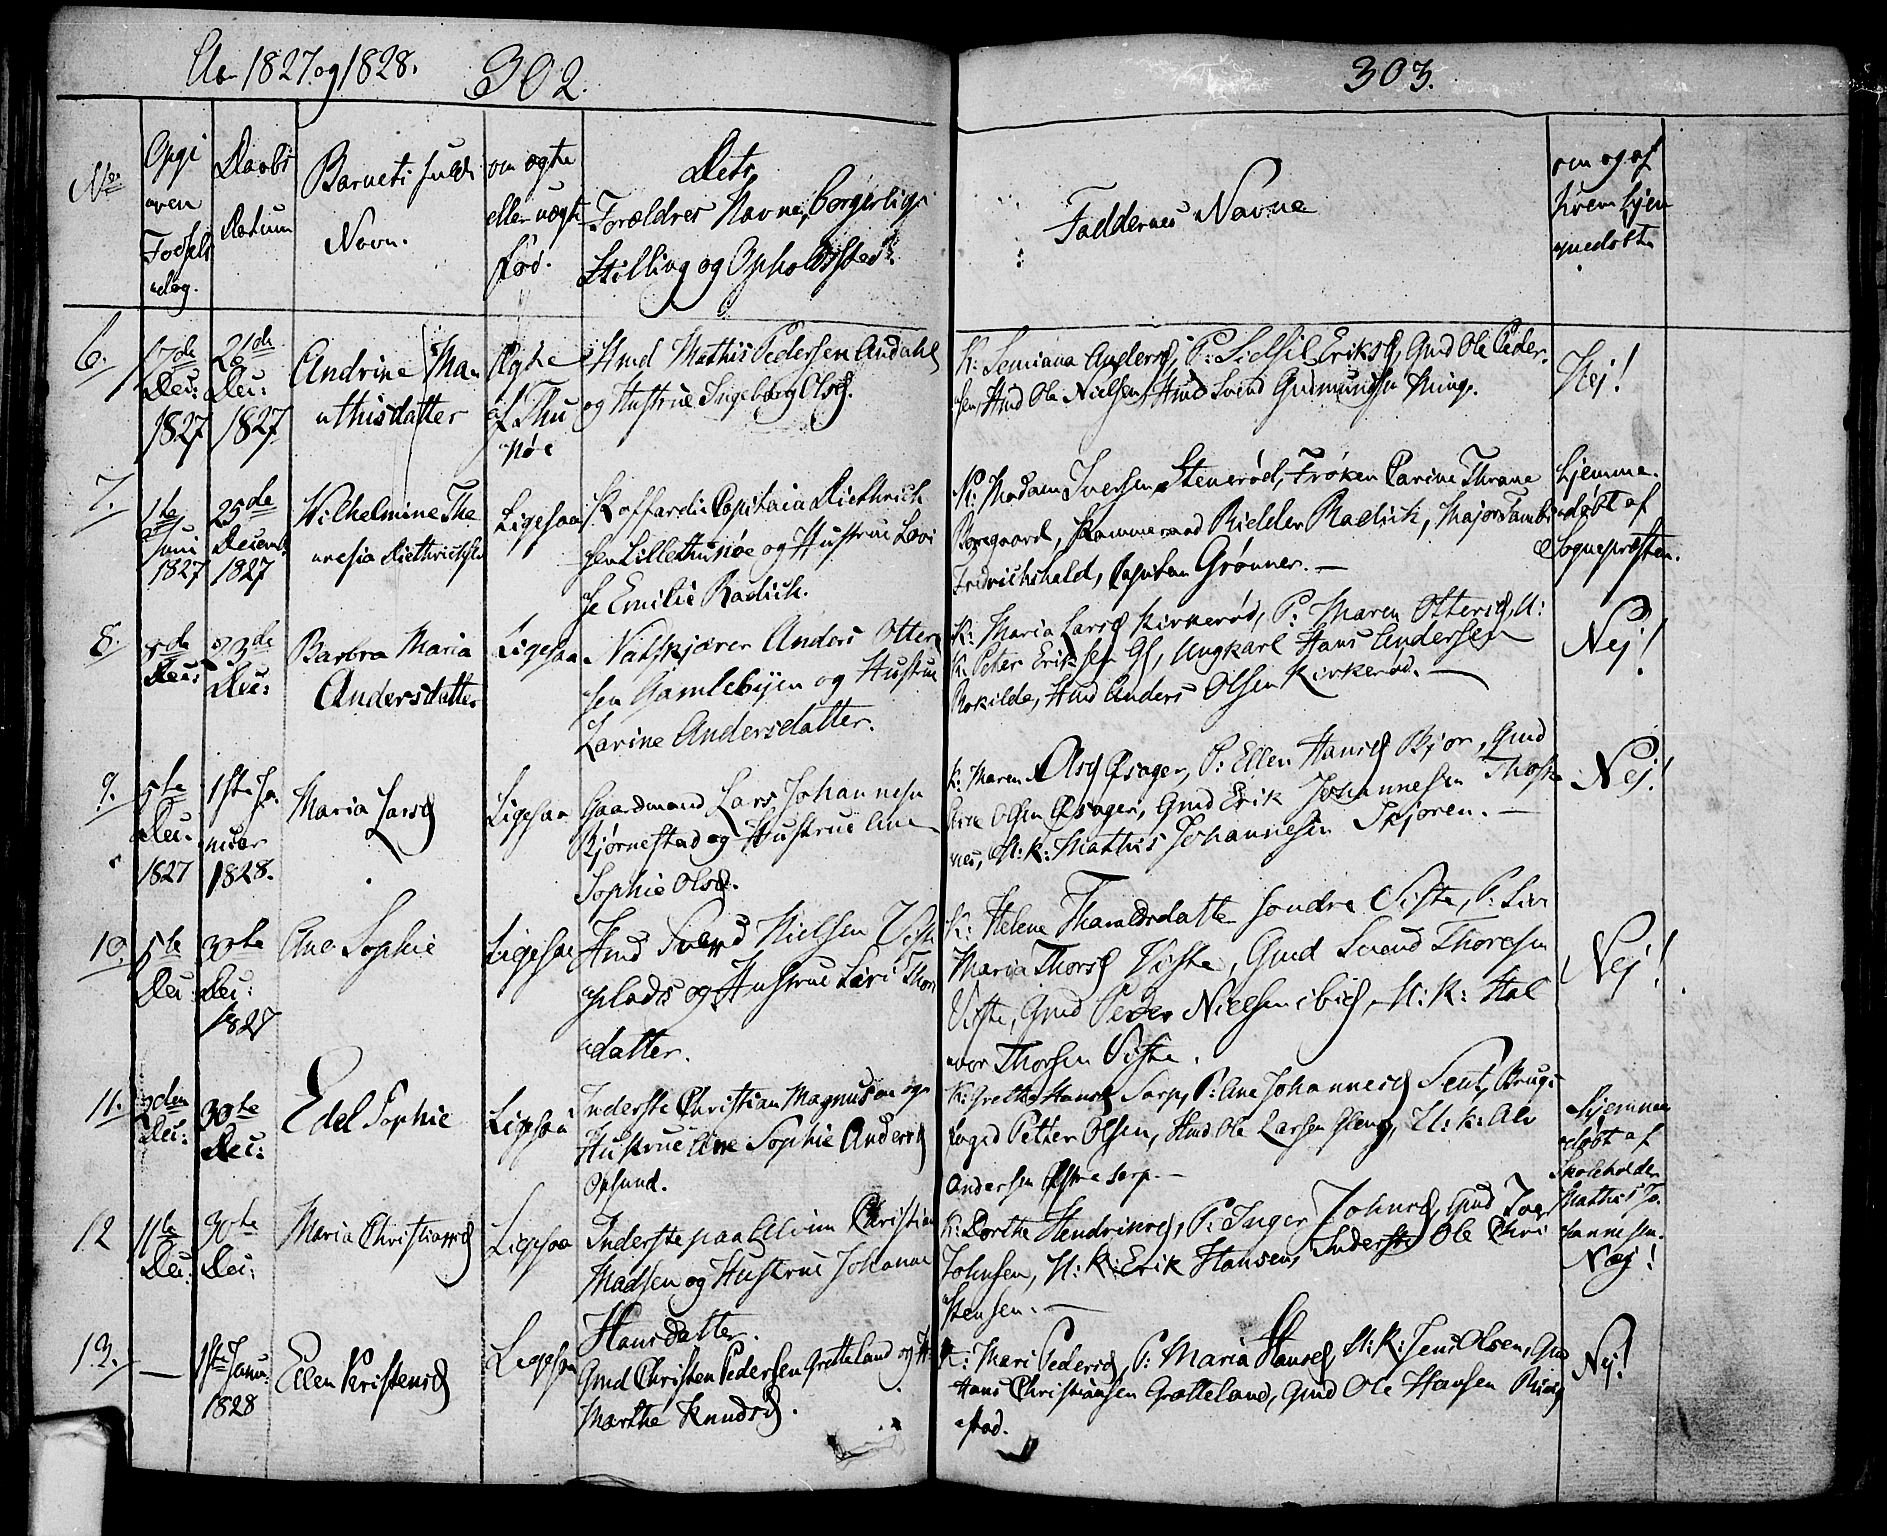 Aar 1827 og 1828.
302.
303.
No.
Opgi
aven
Fødsels
dag.
Daabs
Datum
Barnets fulde
Navn.
om ægte
eller uægte
født.
Dets
Forældres Navne, borgerlige
Stilling og Opholdssted.
Faddernes Navne
om og af
hvem hjem
medøbt
6.
17de
Dec:
1827
26de
Dec:
1827
Andrine Ma
thisdatter
Ægte
af Thu
nøe
Hmd Mathis Pedersen Andahl
og Hustrue Ingeborg Olsd.
K: Andersd, P: Eriksd, Gmd Ole Peder
sen, Hmd Ole Nielsen, Hmd Svend Gudmundsen Ming.
Nej!
7.
1te
Juni
1827
25de
Decemb:
1827
Wilhelmine The
resia Diethrichsen
Ligesaa
Koffardi Capitain Diethrich
sen Lillethunøe og Hustrue Lovi
se Emilie Radich.
K: Madam Iversen Stenerød, Frøken Carine Thrane
Borgaard, Kammeraad Ridder Radich, Major
Fredrichshald, Capitan Grønner. —
hjemme
døbt af
Sognepræsten.
8.
8de
Dec:
23de
Dec:
Barbra Maria
Andersdatter
Ligesaa
Natskjærer Anders Otter
sen Gamlebyen og Hustrue
Larine Andersdatter.
K: Maria Larsd Kirkerød, P: Maren Ottersd, U:
K: Peter Eriksen Gl, Ungkarl Hans Andersen
Rokilde, Hmd Anders Olsen Kirkerød. —
Nej!
9.
5te
Dec.
1827
1ste Ja
nuar
1828.
Maria Larsd
Ligesaa
Gaardmand Lars Johannesen
Bjørnestad og Hustrue Ane
Sophie Olsd.
K: Maren Olsd Øsager, P: Ellen Hansd Skjør, Gmd
Arne Olsen Øsager, Gmd Erik Johannesen Thoste
nes, U: K: Mathis Johannesen Skjøren. —
Nej!
10.
5te
Dec
30te
Dec:
1827
Ane Sophie
Ligesaa
Hmd Svend Nielsen Viste
plads og Hustrue Siri Thors
datter.
K: Helene Tharaldsdatter søndre Viste, P: Siri
Maria Thorsd Viste, Gmd Svend Thoresen
Viste, Gmd Peder Nielsen ibid, U: K: Hal
vor Thorsen Viste.
Nej!
11.
Dec:
30te
Dec:
Edel Sophie
Ligesaa
Inderste Christian Magnusen og
Hustrue Ane Sophie Andersd
Opsund.
K: Grethe Hansd Sarp, P: Ane Johannesd Brugs
foged Petter Olsen, Hmd Ole Larsen Gleng, U: K: Alv
Andersen Østre Sarp. —
hjemme
døbt af
Skoleholder
Mathis Jo
hannesen.
12
11te
Dec:
30te
Dec:
Maria Christiansd
Ligesaa
Inderste paa Alvim Christian
Madsen og Hustrue Johanne
Hansdatter.
K: Dorthe Hendrichsd, P: Inger Johnsd, Gmd Iver
Johnsen, U: K: Erik Hansen, Inderste Ole Chri
stensen. —
Nej!
13.
—
1ste Janu:
1828
Ellen Kristensd
Ligesaa
Gmd Christen Pedersen Gretteland og H:
Marthe Knudsd.
K: Mari Pedersd, P: Maria Hansd, U: K: Jens Olsen, Gmd
Hans Christiansen Grætteland, Gmd Ole Hansen
stad.
Nej!